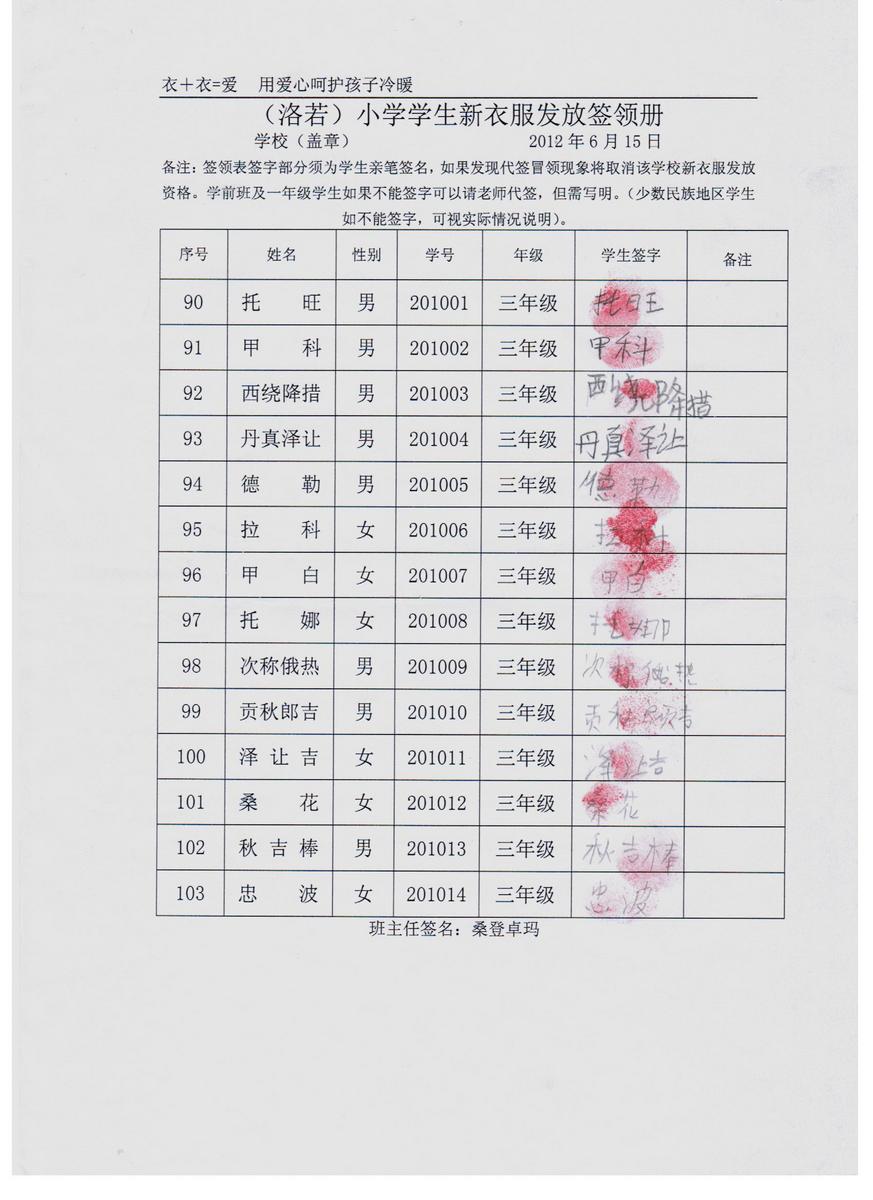 衣＋衣=爱 用爱心呵护孩子冷暖
（洛若）小学学生新衣服发放签领册
学校（盖章） 2012年6月15日
备注：签领表签字部分须为学生亲笔签名，如果发现代签冒领现象将取消该学校新衣服发放
资格。学前班及一年级学生如果不能签字可以请老师代签，但需写明。（少数民族地区学生
如不能签字，可视实际情况说明）。
序号 姓名 性别 学号 年级 学生签字 备注
90 托 旺 男 201001 三年级 托旺
91 甲 科 男 201002 三年级 甲科
92 西绕降措 男 201003 三年级 西绕降措
93 丹真泽让 男 201004 三年级 丹真泽让
94 德 勒 男 201005 三年级 德勒
95 拉 科 女 201006 三年级 拉科
96 甲 白 女 201007 三年级 甲白
97 托 娜 女 201008 三年级 托娜
98 次称俄热 男 201009 三年级 次称俄热
99 贡秋郎吉 男 201010 三年级 贡秋郎吉
100 泽 让 吉 女 201011 三年级 泽让吉
101 桑 花 女 201012 三年级 桑花
102 秋 吉 棒 男 201013 三年级 秋吉棒
103 忠 波 女 201014 三年级 忠波
班主任签名：桑登卓玛